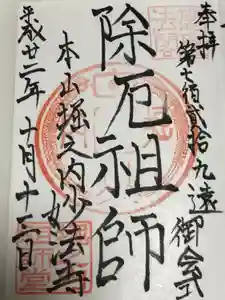 奉拝
第七百貳拾九遠御会式
除厄祖師
本山堀之内妙法寺
平成廿二年十月十二日